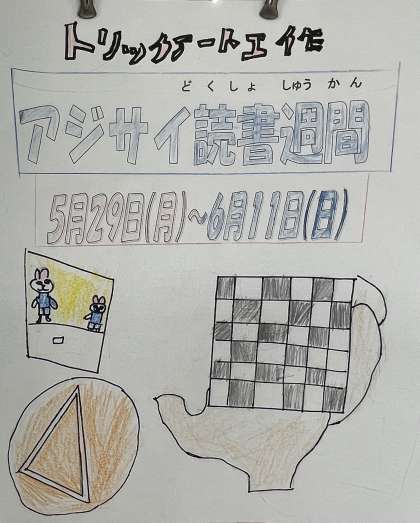 トリックアート工作
どくしょ しゅうかん
アジサイ読書週間
5月29日(月)~6月11日(日)